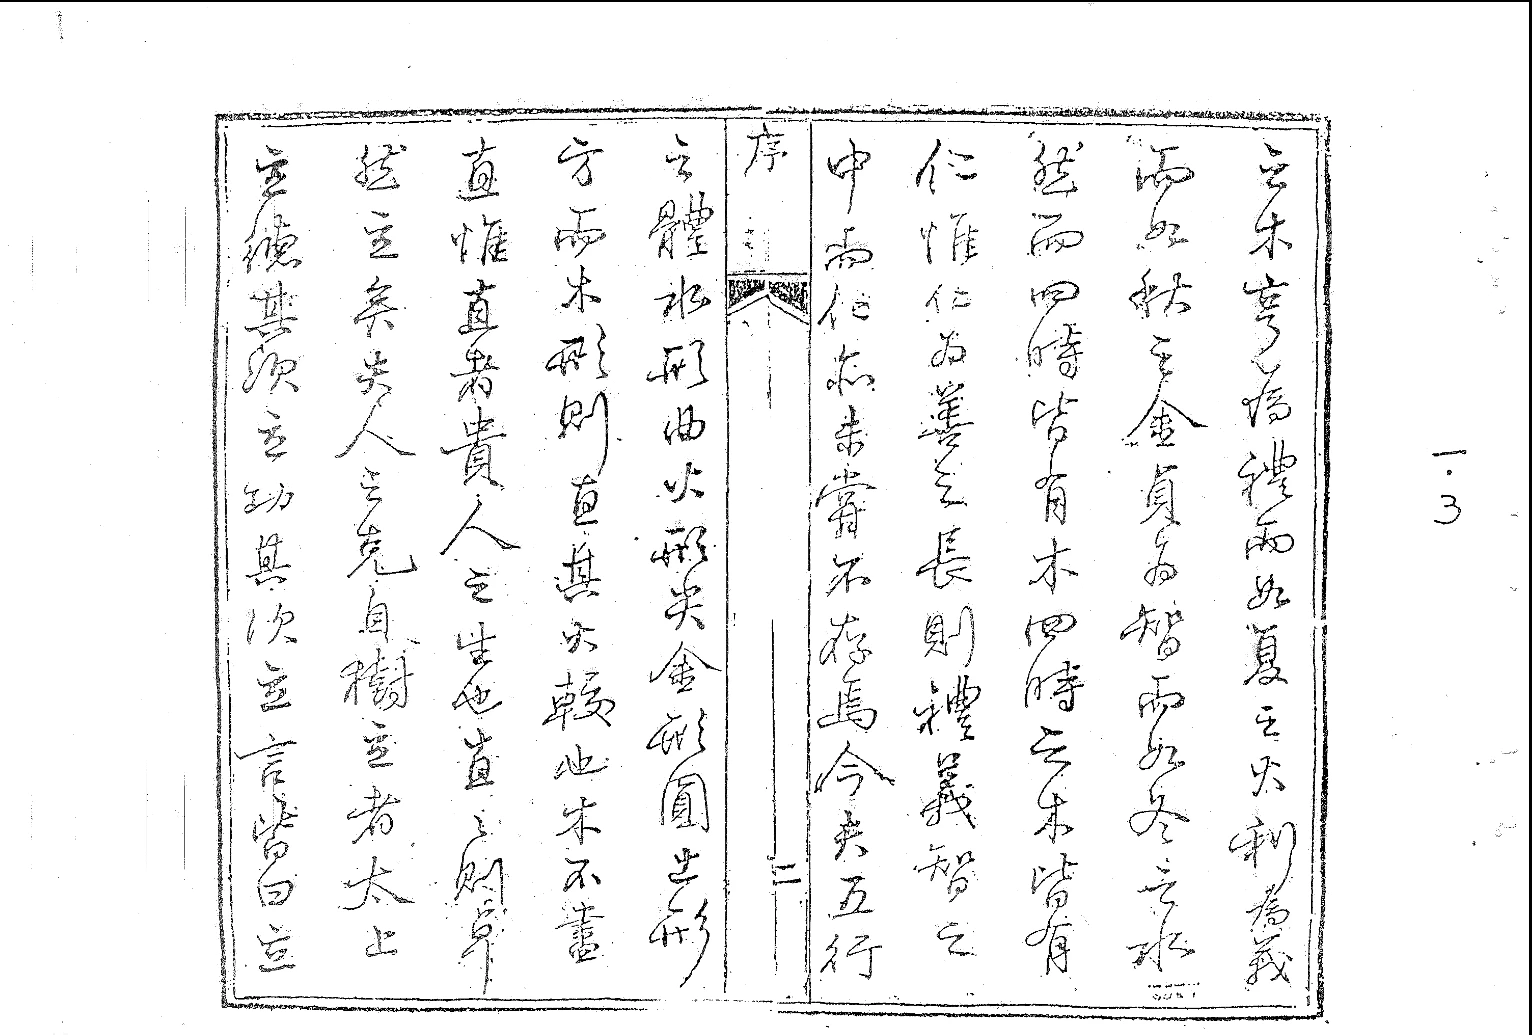 之木亨爲禮而如夏之火利爲義
而如秋之金貞为智而如冬之水
然而四時皆有木四時之木皆有
仁惟仁为善之長則禮義智之
中而仁亦未嘗不存焉今夫五行
序
二
之體水形曲火形尖金形圓土形
方而木形則直其大較也木不盡
直惟直者貴人之生也直々則卓
然立矣夫人之克自樹立者太上
立德其次立功其次立言皆曰立
1.3